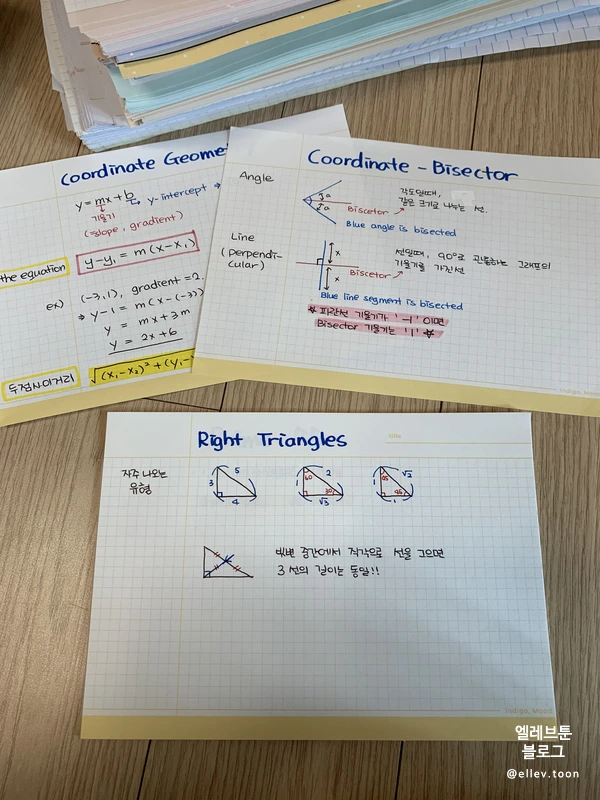 Coordinate Geome
y = mx + b → y-intercept ⇒
기울기
(=slope, gradient)
the equation
y-y₁ = m(x-x₁)
ex)
(-3,1), gradient = 2.
⇒ y-1 = m(x-(-3))
y = mx+3m
y = 2x+6
두점사이거리
√(x₁-x₂)²+(y₁-
Coordinate - Bisector
Angle
a
a
Biscetor
각도일때,
같은 크기로 나누는 선.
Blue angle is bisected
Line
(perpendi-
cular)
x
x
Biscetor
선일때, 90°로 관통하는 그래프의
기울기를 가진선
Blue line segment is bisected
☆ 파란선 기울기가 '-1' 이면
Bisector 기울기는 '1' ☆
Indigo, Mood
Right Triangles
title
자주 나오는
유형
3 5 4
1 60 2 30 √3
1 45 √2 45 1
빗변 중간에서 직각으로 선을 그으면
3선의 길이는 동일!!
Indigo, Mood
엘레브툰
블로그
@ellev.toon